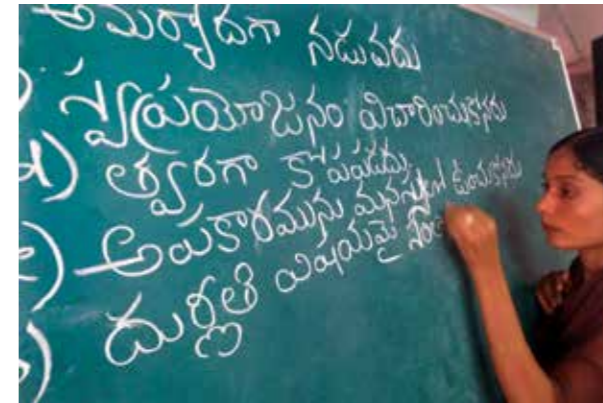 అమర్యాదగా నడువదు
స్వప్రయోజనం విచారించుకొనదు
త్వరగా కోపపడదు
అపకారమును మనస్సులో ఉంచుకొనదు
దుర్నీతి విషయమై